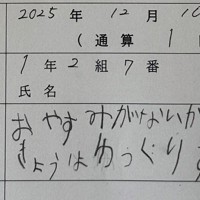 2025 年 12 月 10
（通算 1
1 年 2 組 7 番
氏名
おやすみがないか
きょうはゆっくり